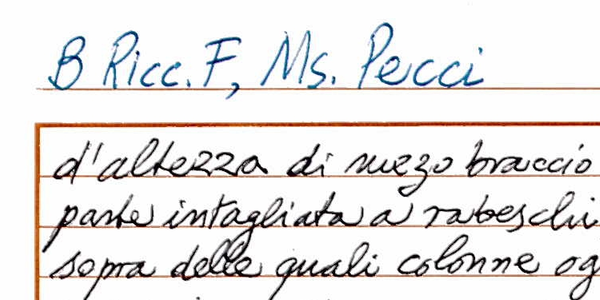 B Ricc. F, Ms. Pecci
d'altezza di mezo braccio
parte intagliata a rabeschi
sopra delle quali colonne og